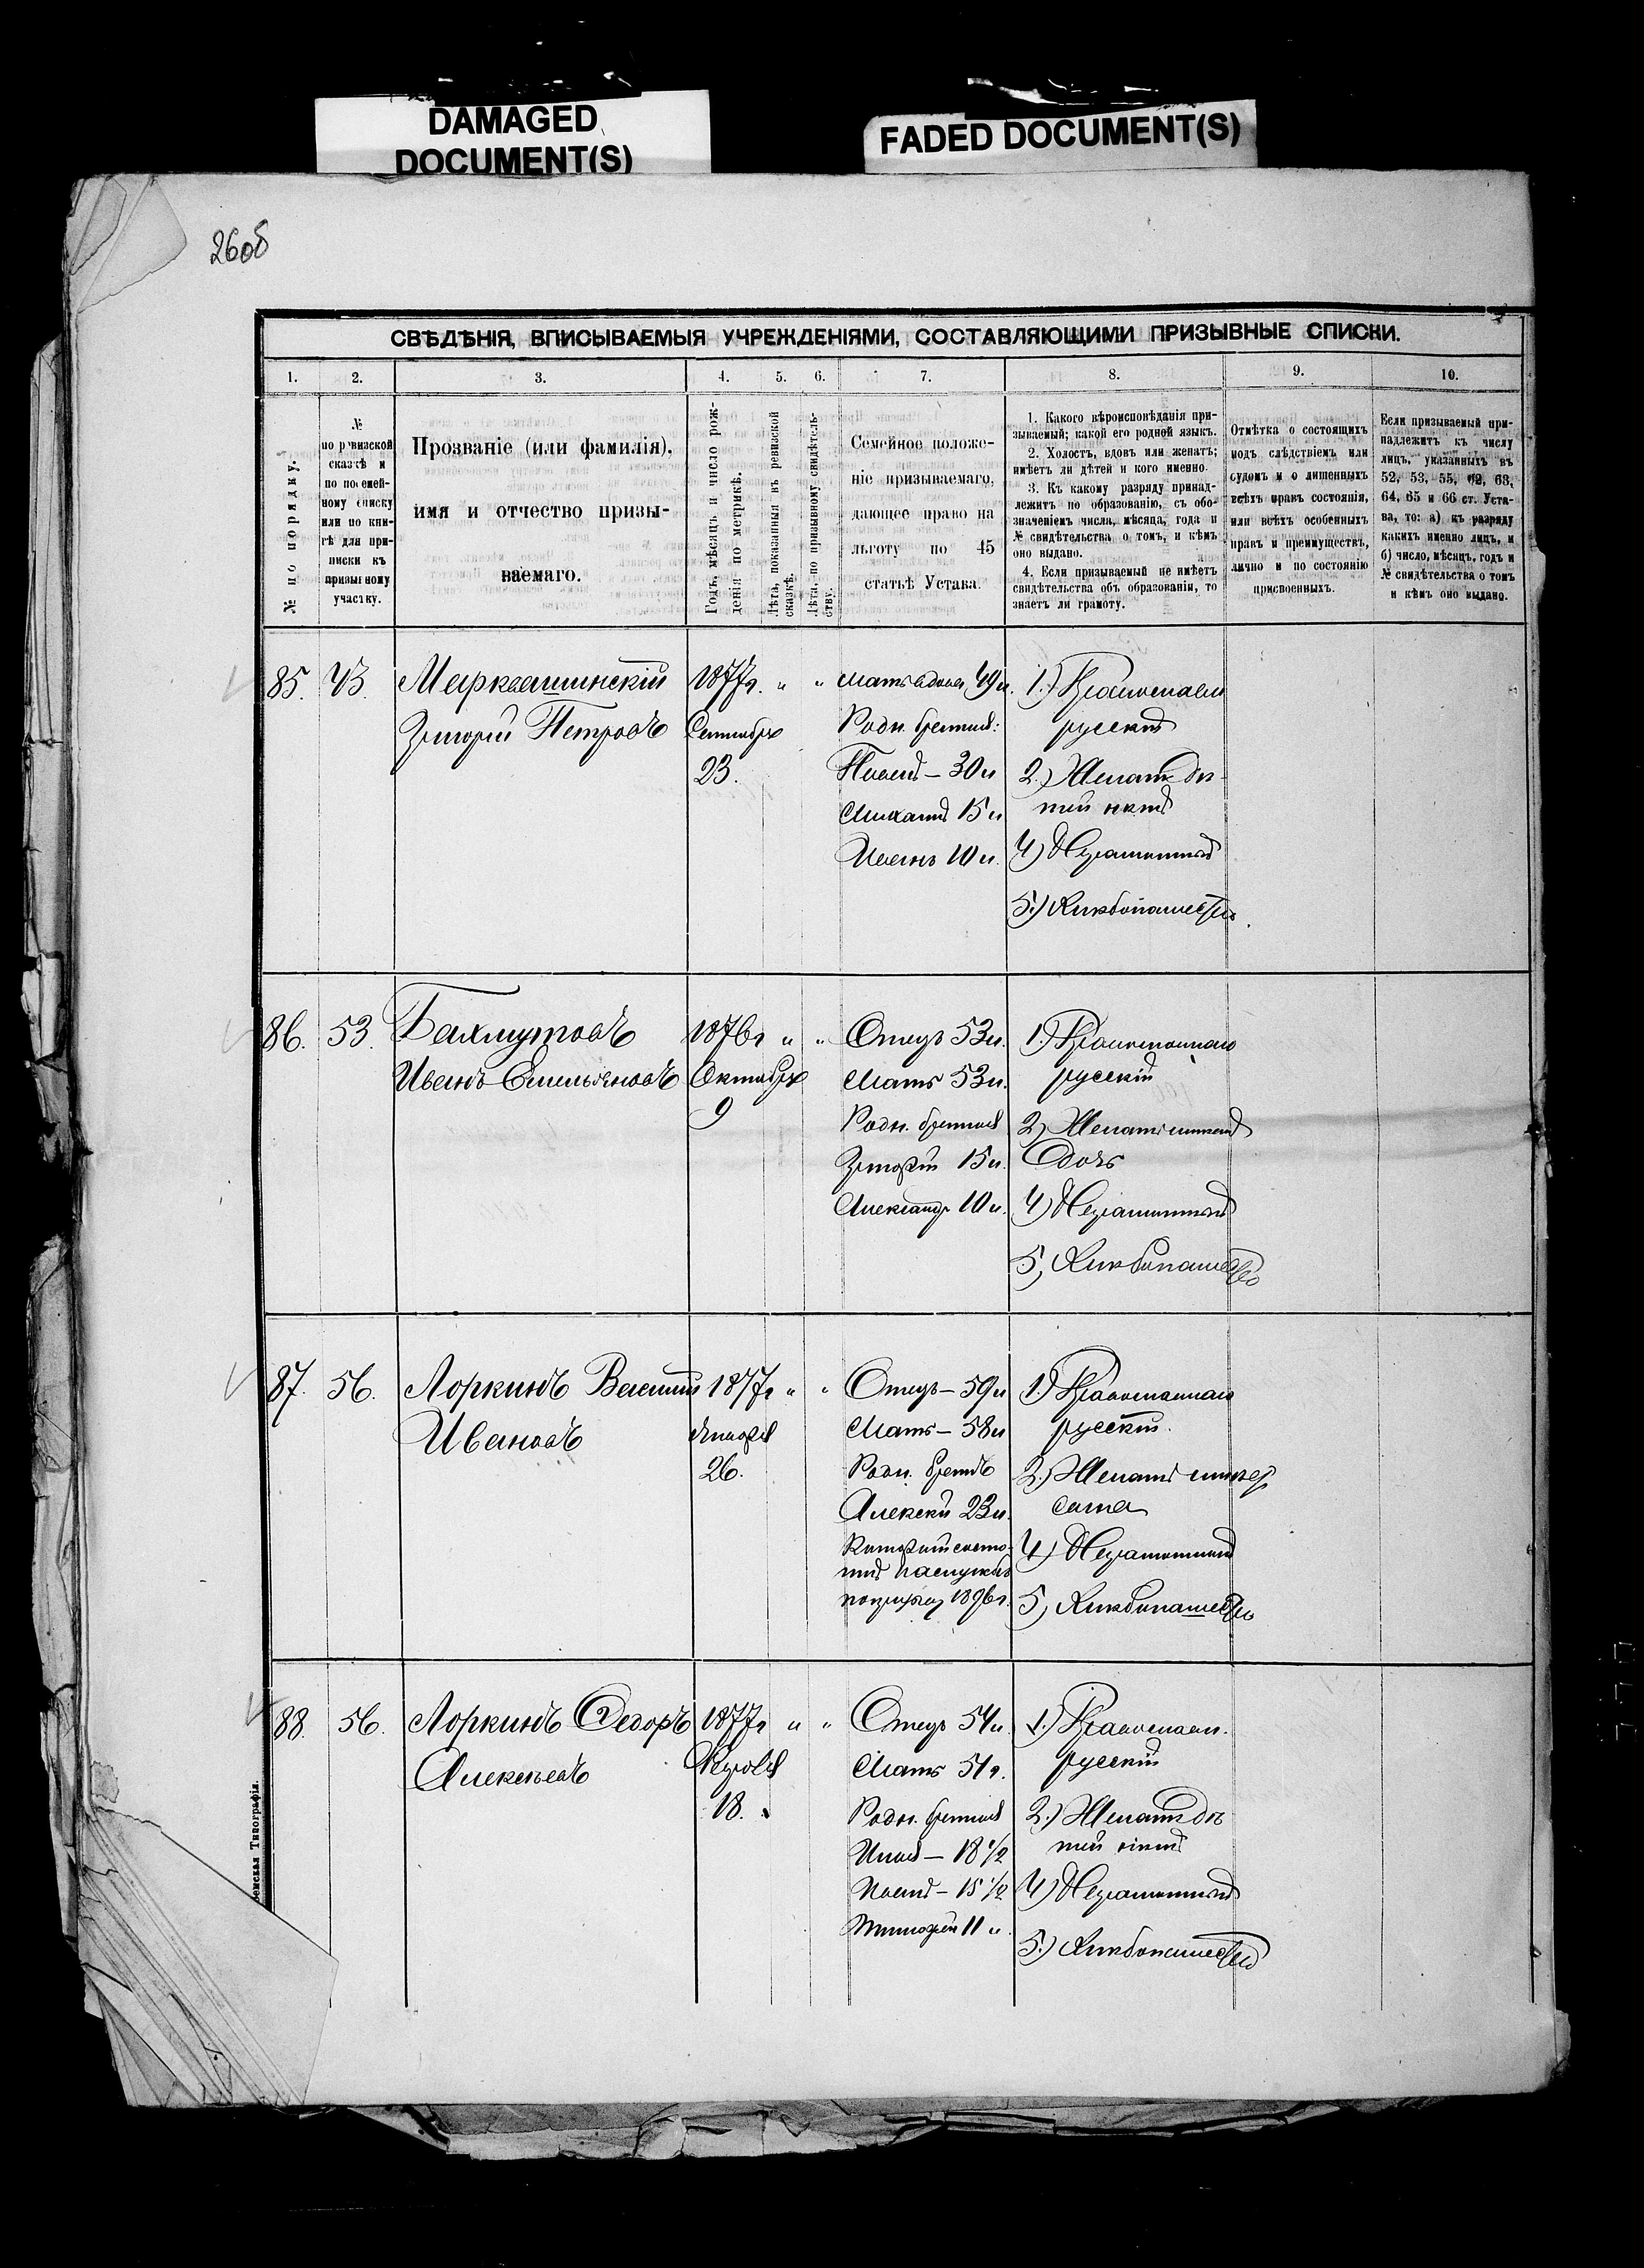 DAMAGED
DOCUMENT(S)
FADED DOCUMENT(S)
26об
СВѢДѢНІЯ, ВПИСЫВАЕМЫЯ УЧРЕЖДЕНІЯМИ, СОСТАВЛЯЮЩИМИ ПРИЗЫВНЫЕ СПИСКИ.
1. 2. 3. 4. 5. 6. 7. 8. 9. 10.
№ по порядку.
№
по ревизской
сказкѣ и
по посемей-
ному списку
или по кни-
гѣ для при-
писки къ
призывному
участку.
Прозваніе (или фамилія),
имя и отчество призы-
ваемаго.
Годъ, мѣсяцъ и число рож-
денія по метрикѣ.
Лѣта, показанныя въ ревизской
сказкѣ.
Лѣта, по призывному свидѣтель-
ству.
Семейное положе-
ніе призываемаго,
дающее право на
льготу по 45
статьѣ Устава.
1. Какого вѣроисповѣданія при-
зываемый; какой его родной языкъ.
2. Холостъ, вдовъ или женатъ;
имѣетъ ли дѣтей и кого именно.
3. Къ какому разряду принад-
лежитъ по образованію, съ обо-
значеніемъ числа, мѣсяца, года и
№ свидѣтельства о томъ, и кѣмъ
оно выдано.
4. Если призываемый не имѣетъ
свидѣтельства объ образованіи, то
знаетъ ли грамоту.
Отмѣтка о состоящихъ
подъ слѣдствіемъ или
судомъ и о лишенныхъ
всѣхъ правъ состоянія,
или всѣхъ особенныхъ
правъ и преимуществъ,
лично и по состоянію
присвоенныхъ.
Если призываемый при-
надлежитъ къ числу
лицъ, указанныхъ въ
52, 53, 55, 62, 63,
64, 65 и 66 ст. Уста-
ва, то: а) къ разряду
какихъ именно лицъ, и
б) число, мѣсяцъ, годъ и
№ свидѣтельства о томъ
и кѣмъ оно выдано.
85. 43.
Григорій Петровъ
1877г. " "
Сентября
23.
Мать вдова 49 л.
Родн. братья:
Павелъ – 30 л
Михаилъ 15 л
Иванъ 10 л.
1.) Православн
русскій
2.) Женатъ дѣ-
тей нѣтъ
4) Неграмотный
5.) Хлѣбопашество.
86. 53.
Бахмутовъ
Иванъ Емельяновъ
1876г " "
Октября
9
Отецъ 53 л.
Мать 53 л.
Родн. братья
Григорій 15 л.
Александр 10 л.
1.) Православнаго
русскій
2) Женатъ имѣетъ
дочь
4) Неграмотный
5) Хлѣбопашество
87. 56.
Лоркинъ Василій
Ивановъ
1877г " "
Января
26.
Отецъ – 59 л
Мать – 58 л
Родн. братъ
Алексѣй 23 л.
1896г.
1.) Православнаго
русскій.
2.) Женатъ имѣет
сына
4) Неграмотный
5) Хлѣбопашество
88. 56.
Лоркинъ Ѳедоръ
Алексѣевъ
1877г " "
18.
Отецъ 54 л.
Мать 51 г.
Родн. братья
Илья – 18 1/2
Павелъ – 15 1/2
Тимофей 11 л.
1.) Православн.
русскій
2.) Женатъ дѣ
тей нѣтъ
4) Неграмотный
5.) Хлѣбопашество
Земская Типографія.